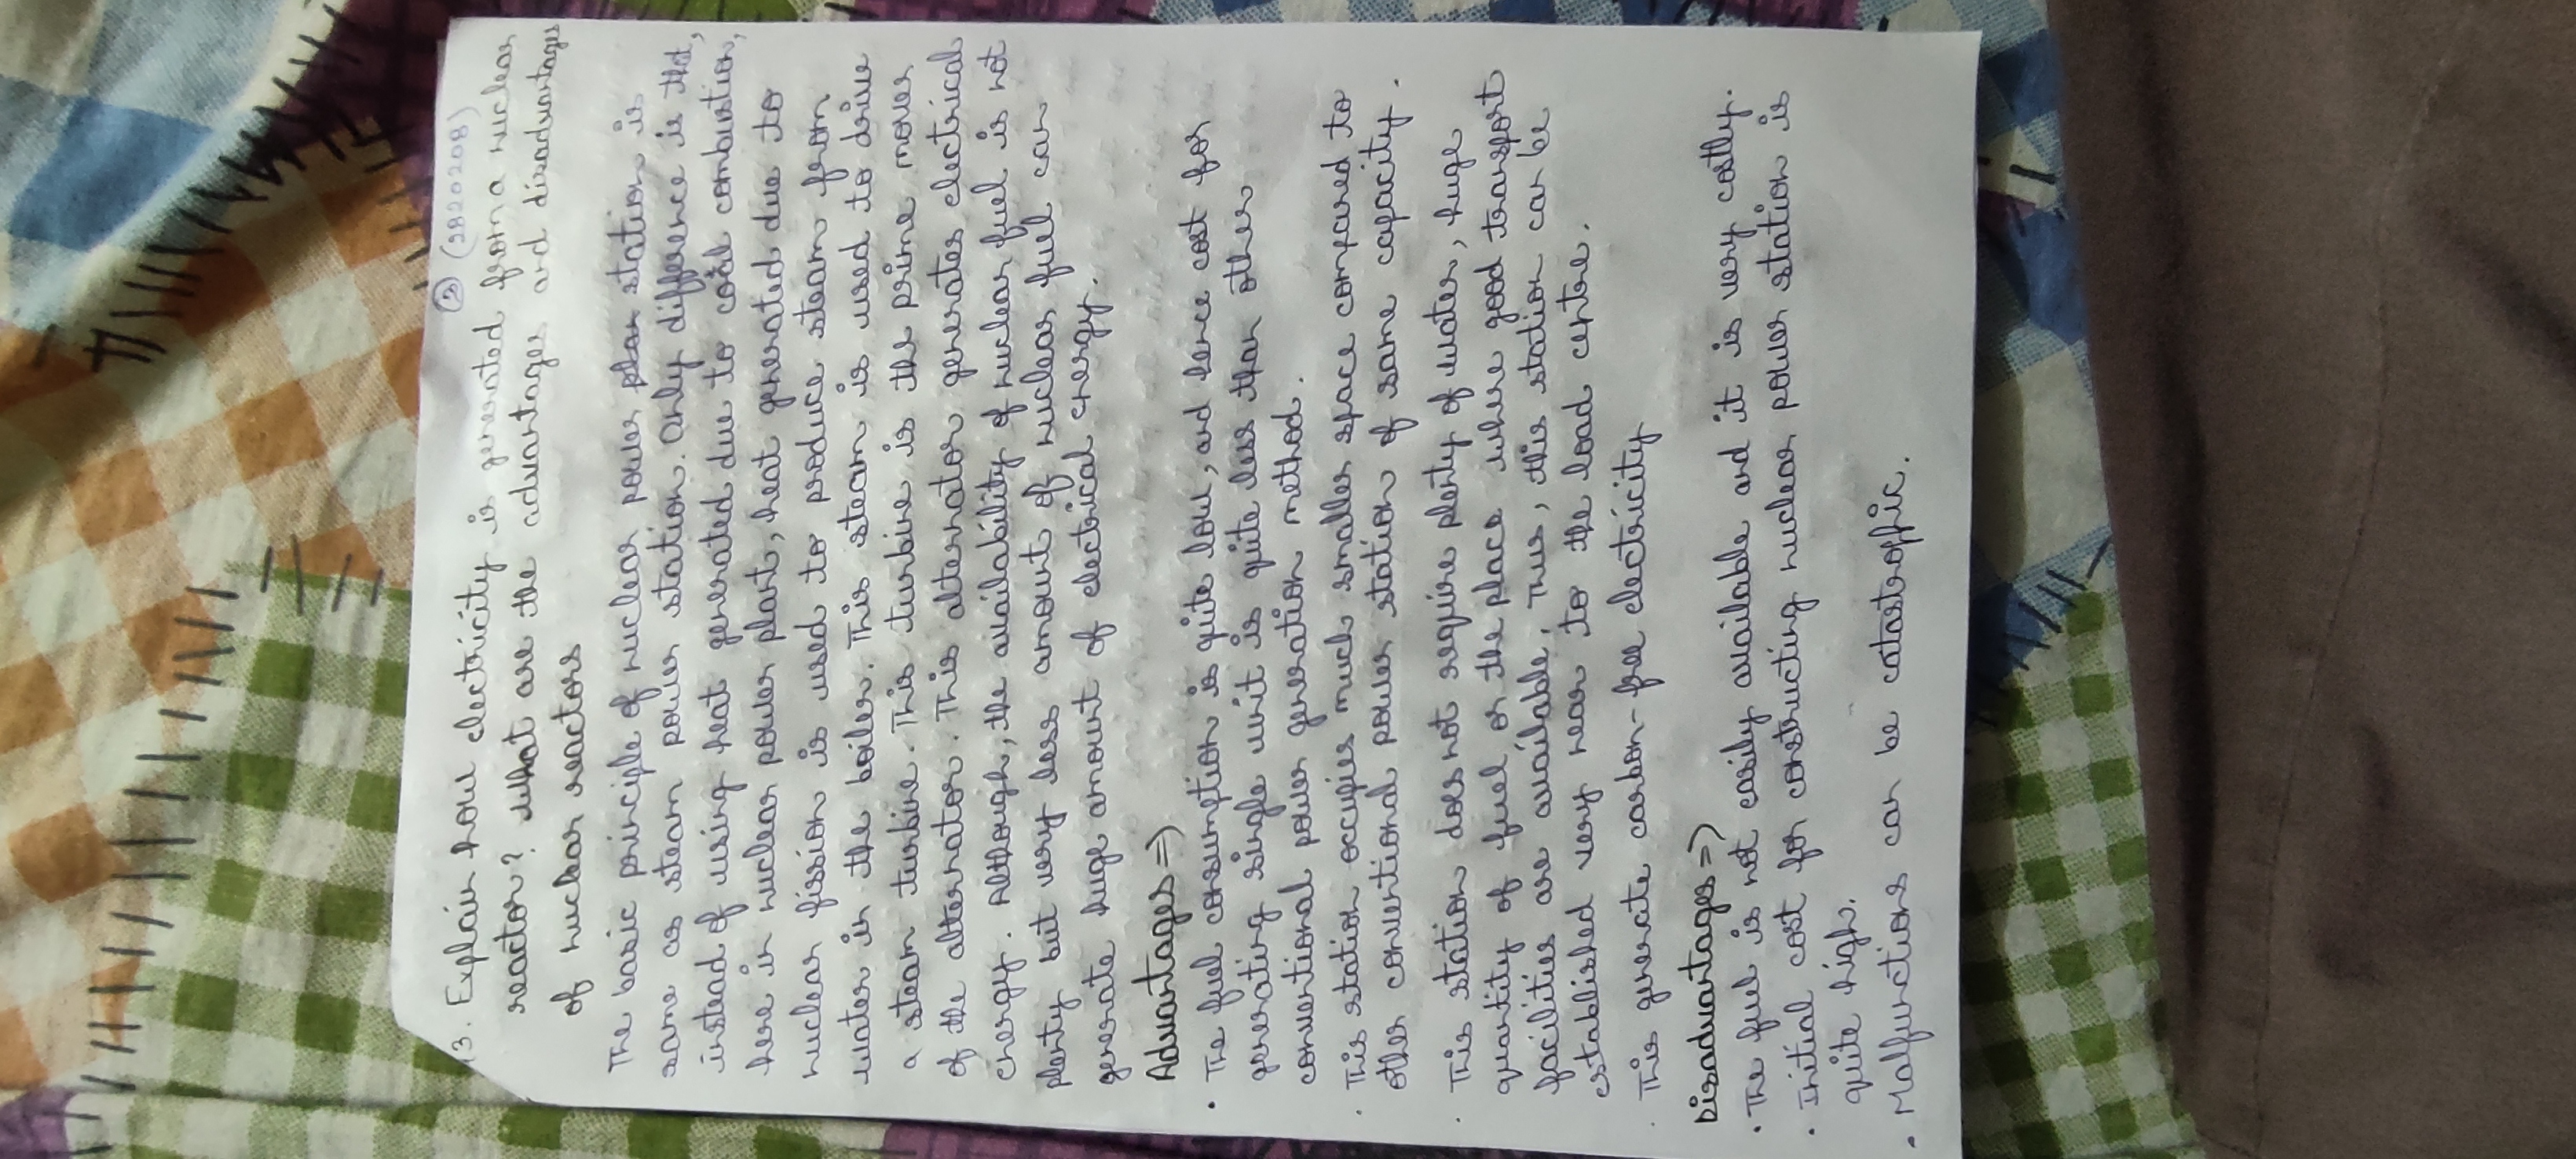 ② (2820208)
13. Explain how electricity is generated from a nuclear
reactor? What are the advantages and disadvantages
of nuclear reactors
The basic principle of nuclear power station is
same as steam power station. Only difference is that,
instead of using heat generated due to coal combustion,
here in nuclear power plant, heat generated due to
nuclear fission is used to produce steam from
water in the boiler. This steam is used to drive
a steam turbine. This turbine is the prime mover
of the alternator. This alternator generates electrical
energy. Although, the availability of nuclear fuel is not
plenty but very less amount of nuclear fuel can
generate huge amount of electrical energy.
Advantages =>
• The fuel consumption is quite low, and hence cost for
generating single unit is quite less than other
conventional power generation method.
• This station occupies much smaller space compared to
other conventional power station of same capacity.
• This station does not require plenty of water, huge
quantity of fuel or the place where good transport
facilities are available. Thus, this station can be
established very near to the load centre.
• This generate carbon-free electricity
Disadvantages =>
• The fuel is not easily available and it is very costly.
• Initial cost for constructing nuclear power station is
quite high.
• Malfunctions can be catastroffic.